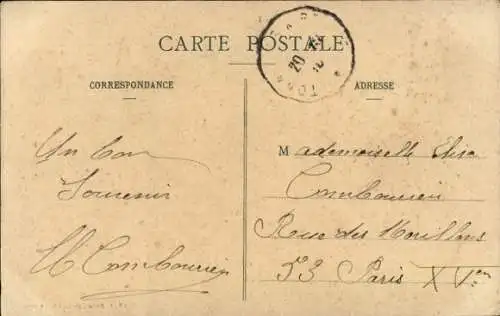 CARTE POSTALE
CORRESPONDANCE
ADRESSE
Un bon
Souvenir
M Combourieu
Mademoiselle Elisa
Combourieu
Rue des Morillons
53 Paris XVem
20